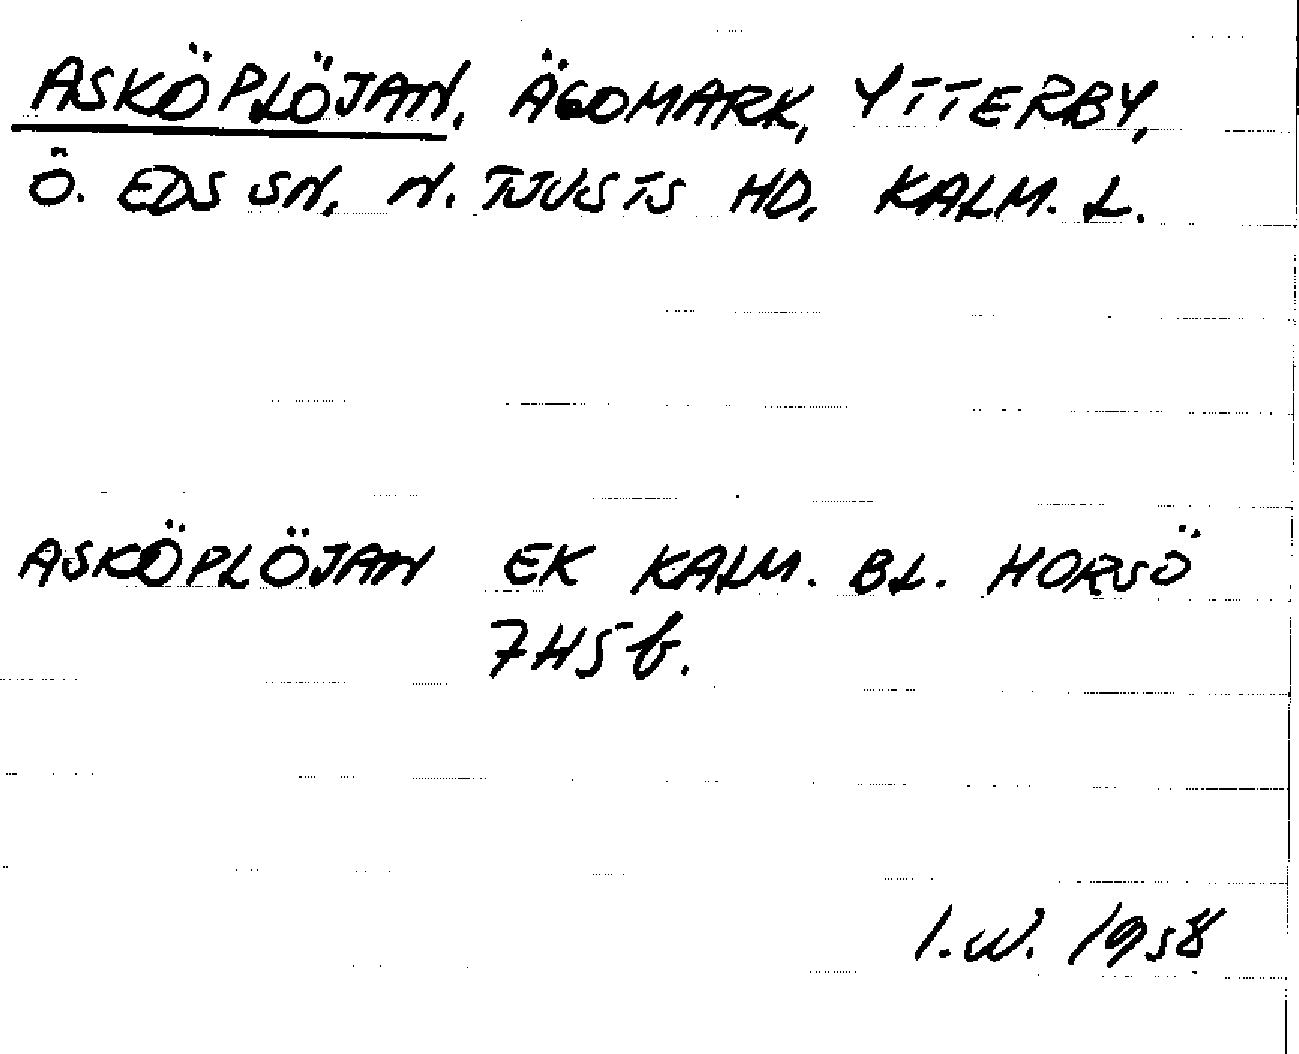 ASKÖPLÖJAN, ÄGOMARK, YTTERBY,
Ö. EDS SN, N. TJUSTS HD, KALM. L.
ASKÖPLÖJAN EK KALM. BL. HORSÖ
7H5b.
I.W. 1958